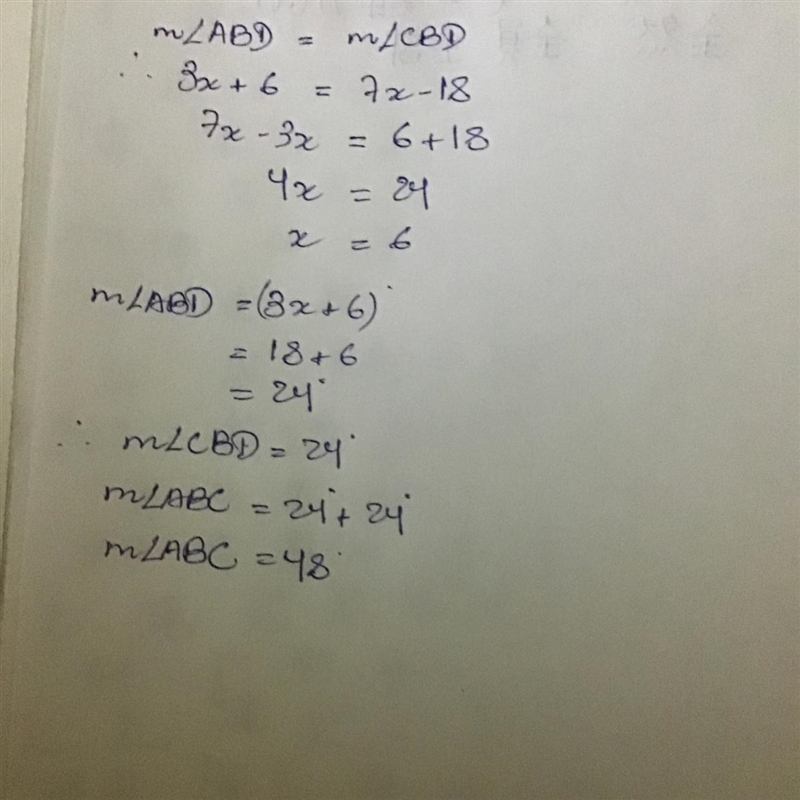 m∠ABD = m∠CBD
∴ 3x + 6 = 7x - 18
7x - 3x = 6 + 18
4x = 24
x = 6
m∠ABD = (3x + 6)°
= 18 + 6
= 24°
∴ m∠CBD = 24°
m∠ABC = 24° + 24°
m∠ABC = 48°